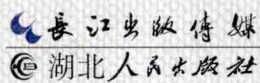 長江出版傳媒
湖北人民出版社